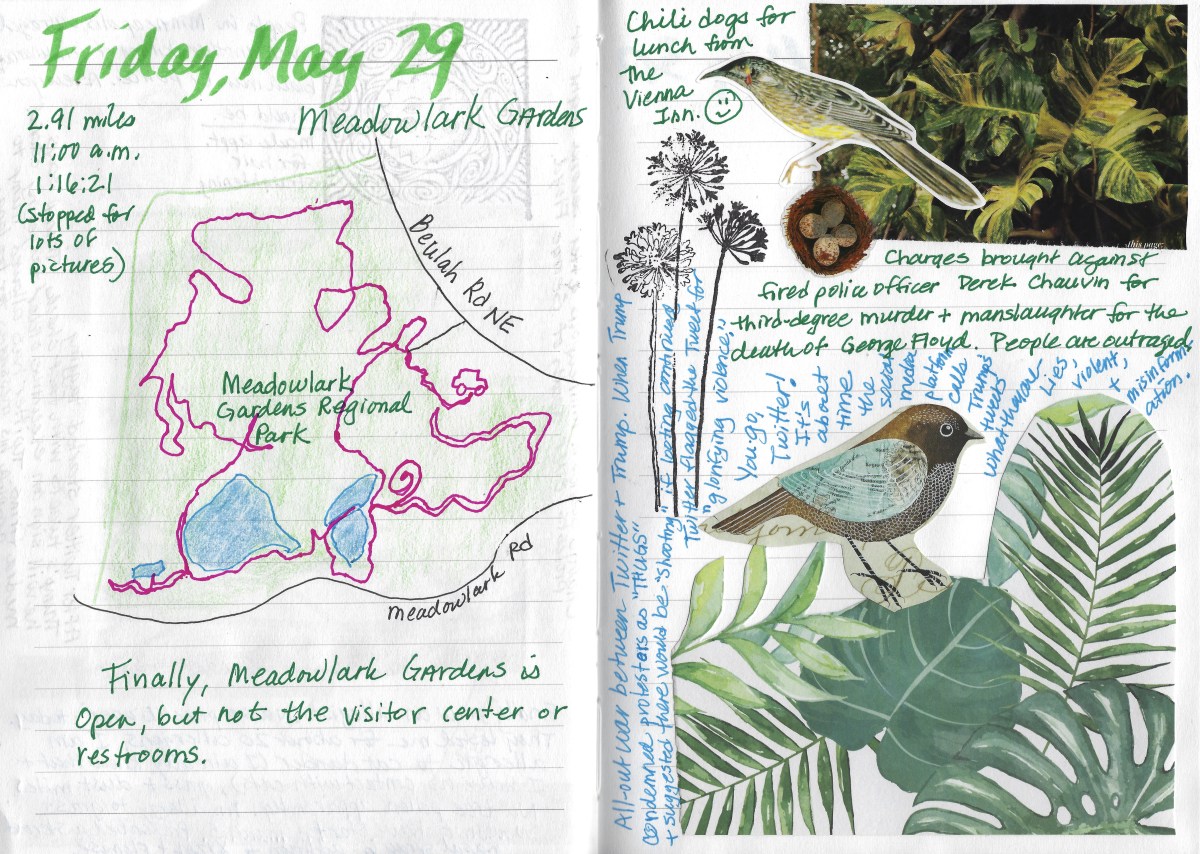 Friday, May 29
2.91 miles
11:00 a.m.
1:16:21
(stopped for
lots of
pictures)
Meadowlark Gardens
Beulah Rd NE
Meadowlark
Gardens Regional
Park
Meadowlark Rd
Finally, Meadowlark Gardens is
open, but not the visitor center or
restrooms.
Chili dogs for
lunch from
the
Vienna
Inn.
this page:
Charges brought against
fired police officer Derek Chauvin for
third-degree murder + manslaughter for the
death of George Floyd. People are outraged.
All-out war between Twitter + Trump. When Trump
condemned protesters as "THUGS"
+ suggested there would be "shooting" if looting continued,
Twitter flagged the Tweet for
"glorifying violence."
You go,
Twitter!
It's
about
time
the
social
media
platform
calls
Trump's
tweets
what they are:
Lies,
violent,
+
misinform-
ation.